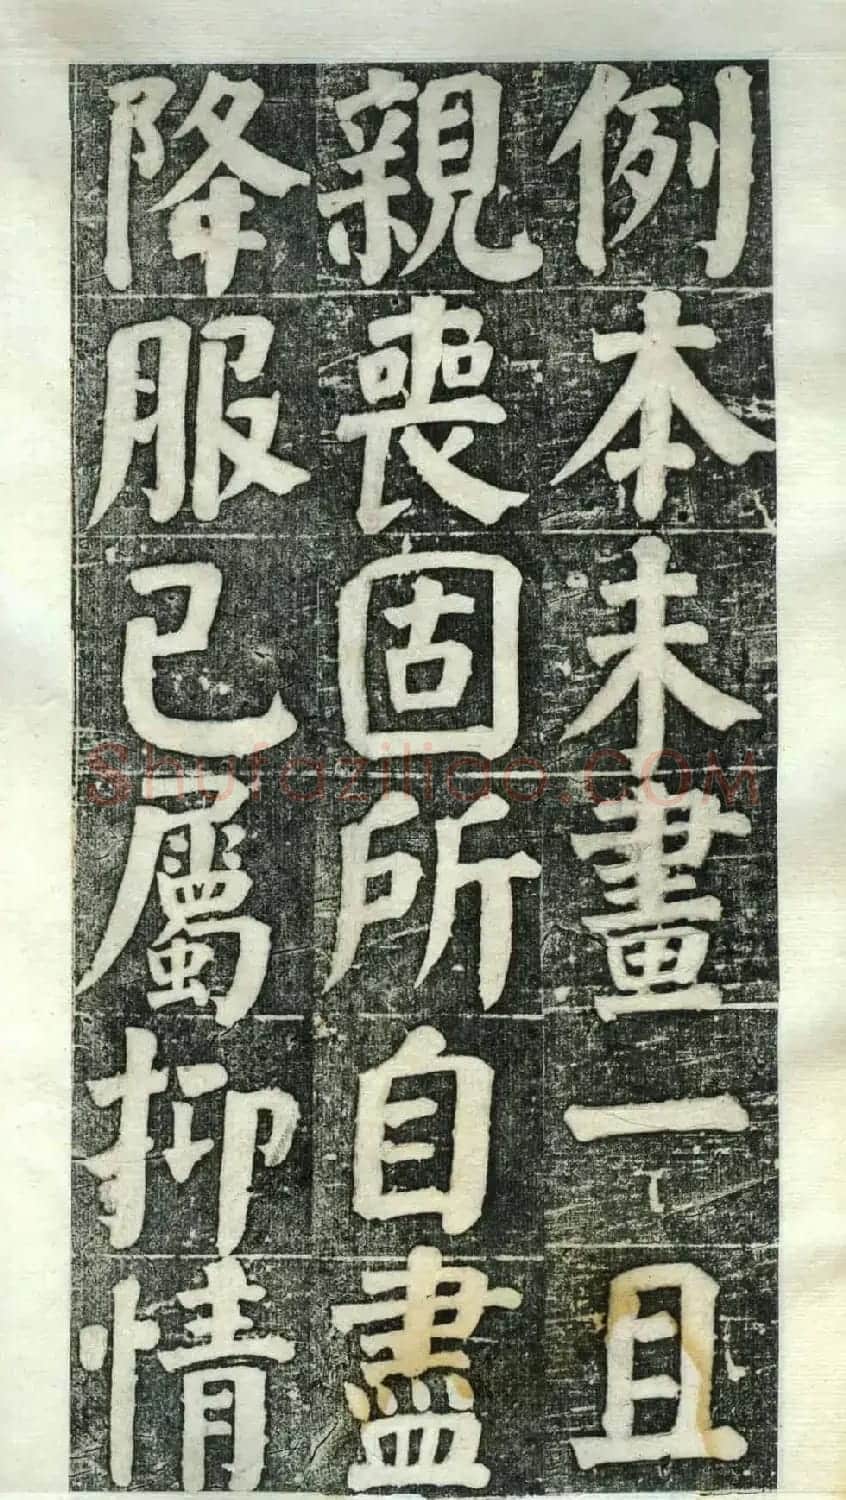 例本未畫一且
親喪固所自盡
降服已屬抑情
Shufaziliao.COM